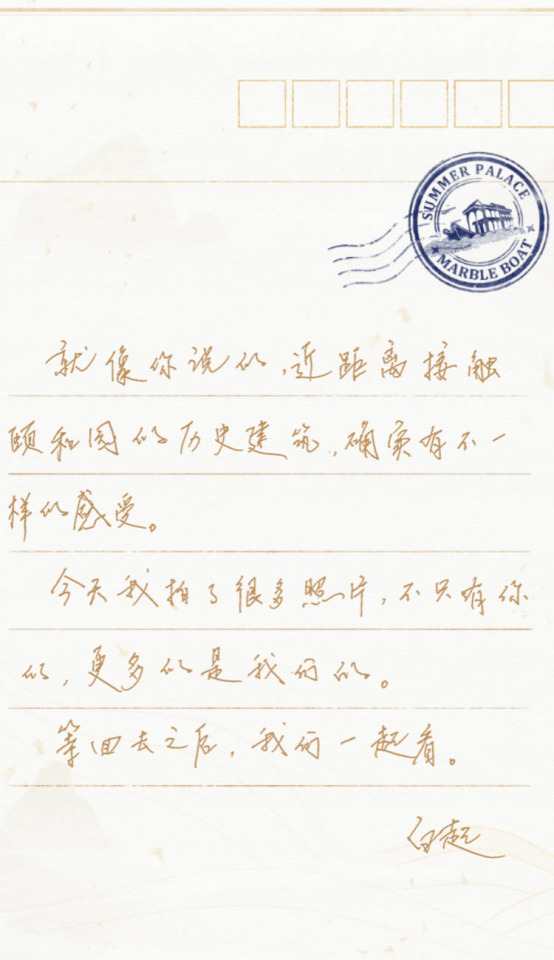 SUMMER PALACE
MARBLE BOAT
就像你说的,近距离接触
颐和园的历史建筑,确实有不一
样的感受。
今天我拍了很多照片,不只有你
的,更多的是我们的。
等回去之后,我们一起看。
白起